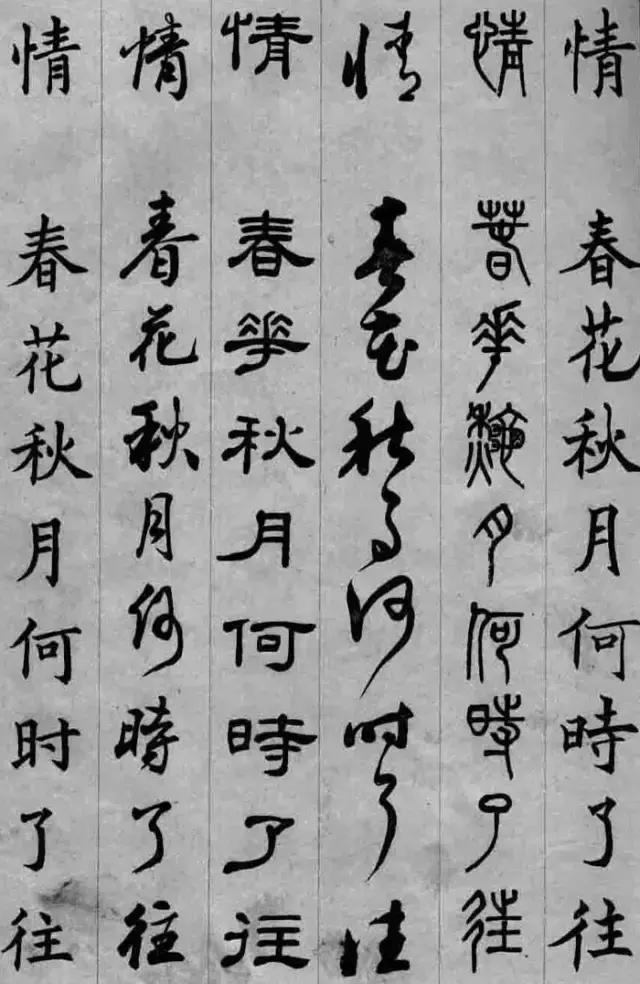 情 春花秋月何時了往
情 春華秋月何時了往
情 春花秋月何时了往
情 春華秋月何時了往
情 春花秋月何時了往
情 春花秋月何时了往